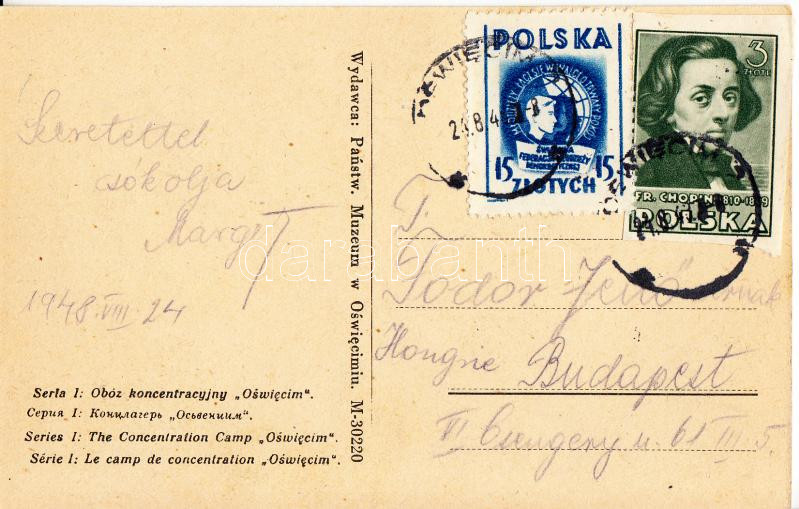 Szeretettel
sókolja
Margit
1948.VIII.24
Seria I: Obóz koncentracyjny „Oświęcim“.
Серия I: Концлагерь „Осьвенциим“.
Series I: The Concentration Camp „Oświęcim“.
Série I: Le camp de concentration „Oświęcim“.
Wydawca: Państw. Muzeum w Oświęcimiu. M-30220
POLSKA
15 15
ZŁOTYCH
3
ZŁOTE
FR. CHOPIN 1810-1849
POLSKA
OŚWIĘCIM 3
T.
Fodor Jenő úrnak
Hongrie Budapest
VI Csengery u. 61 III. 5.
darabanth